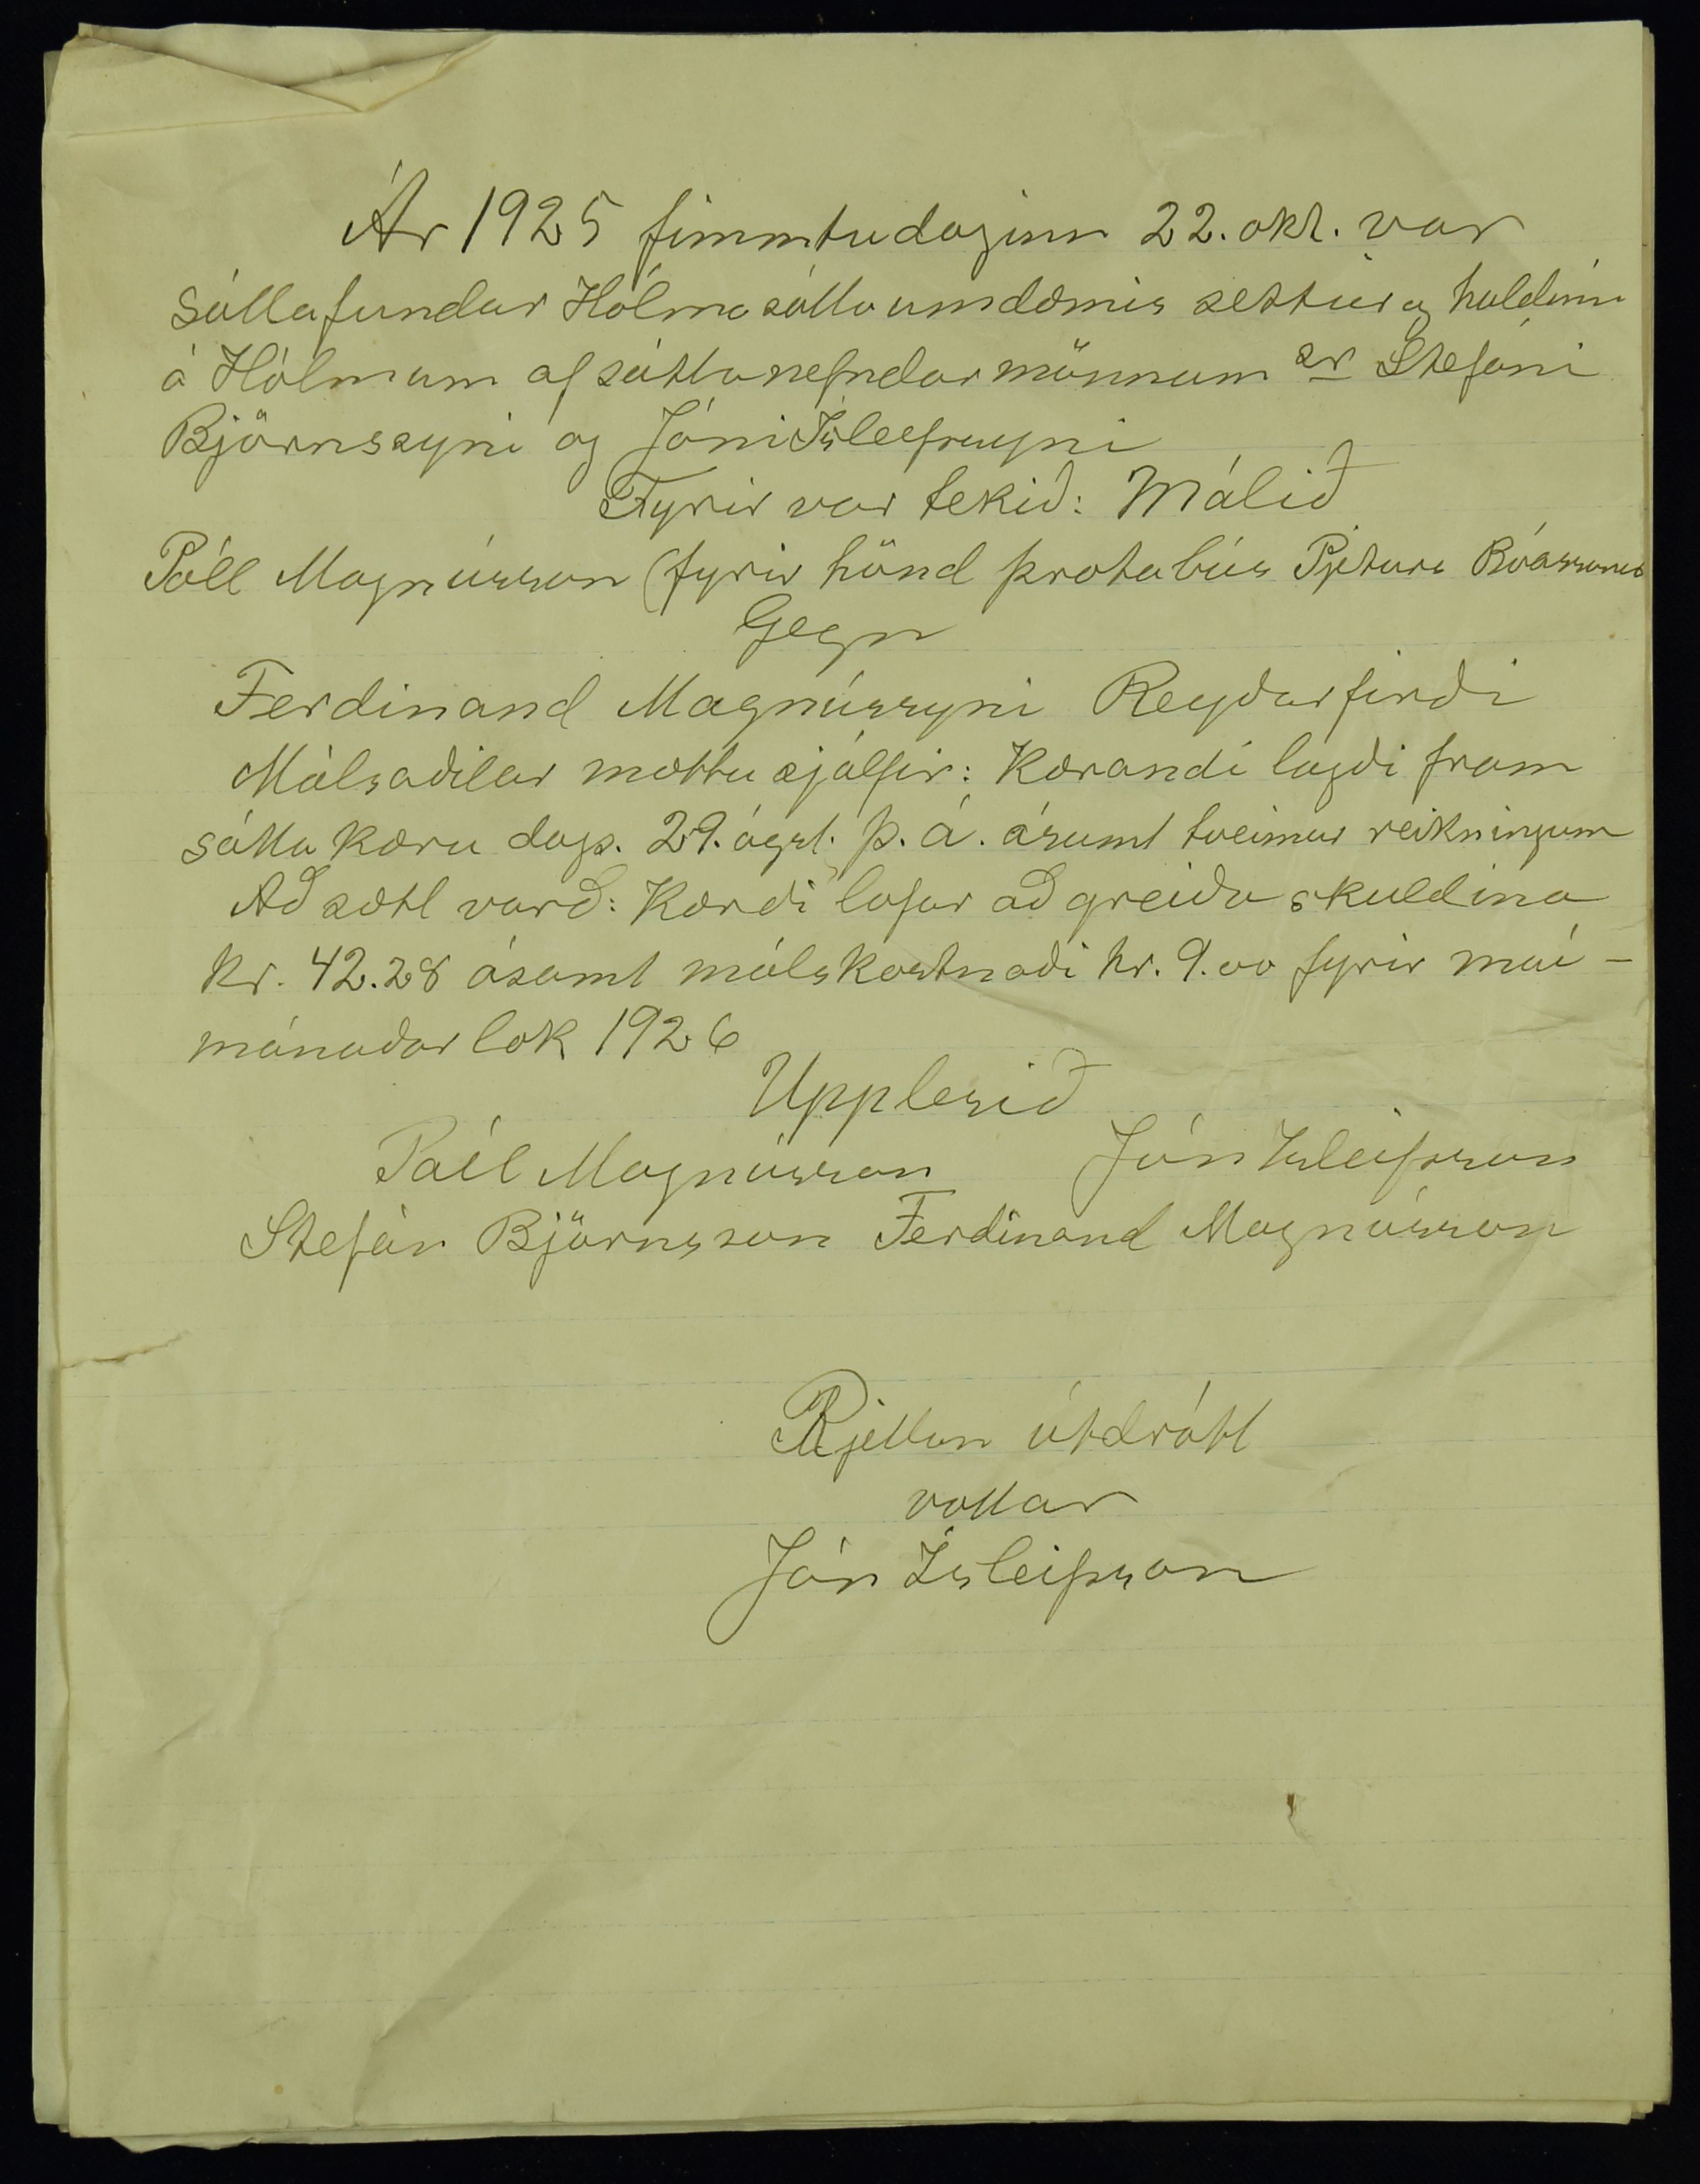 Ár 1925 fimmtudaginn 22. okt. var
sáttafundur Hólmasáttaumdæmis settur og haldinn
á Hólmum af sáttanefndarmönnum sr Stefáni
Björnssyni og Jóni Ísleifssyni
Fyrir var tekið: Málið
Páll Magnússon (fyrir hönd þrotabús Pjeturs Bóassonar
Gegn
Ferdinand Magnússyni Reyðarfirði
Málsaðilar mættu sjálfir: Kærandi lagði fram
sáttakæru dags. 29. ágst. þ. á. ásamt tveimur reikningum
Að sætt varð: Kærði lofar að greiða skuldina
kr. 42.28 ásamt málskostnaði kr. 9.00 fyrir maí-
mánaðarlok 1926
Upplesið
Páll Magnússon Jón Ísleifsson
Stefán Björnsson Ferdinand Magnússon
Rjettan útdrátt
vottar
Jón Ísleifsson